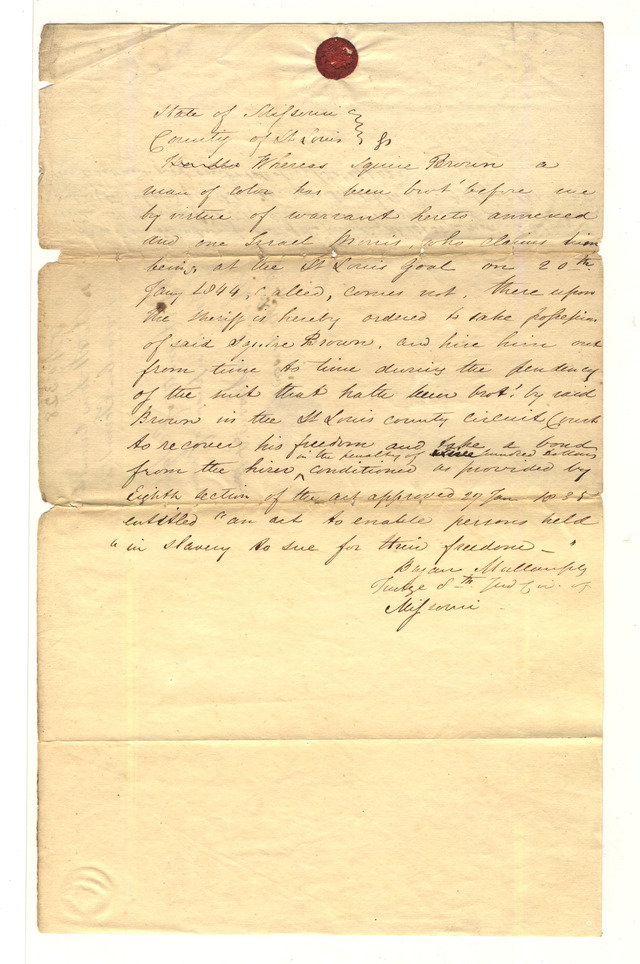 State of Missouri }
County of St Louis } ss
Whereas Squire Brown a
man of color has been brot' before me
by virtue of warrant hereto annexed
and one Israel Morris, who claims him
being at the St Louis Goal on 20th
Jany 1844, called, comes not, there upon
the sheriff is hereby ordered to take possession
of said Squire Brown, and hire him out
from time to time during the pendency
of the suit that hath been brot' by said
Brown in the St Louis county Circuit Court
to recover his freedom and take a bond
in the penalty of hundred dollars
from the hirer ^ conditioned as provided by
Eighth section of the act approved 27 Jan 1835
entitled "an act to enable persons held
"in slavery to sue for their freedom — "
Bryan Mullanphy
Judge 8th Jud Cir. of
Missouri